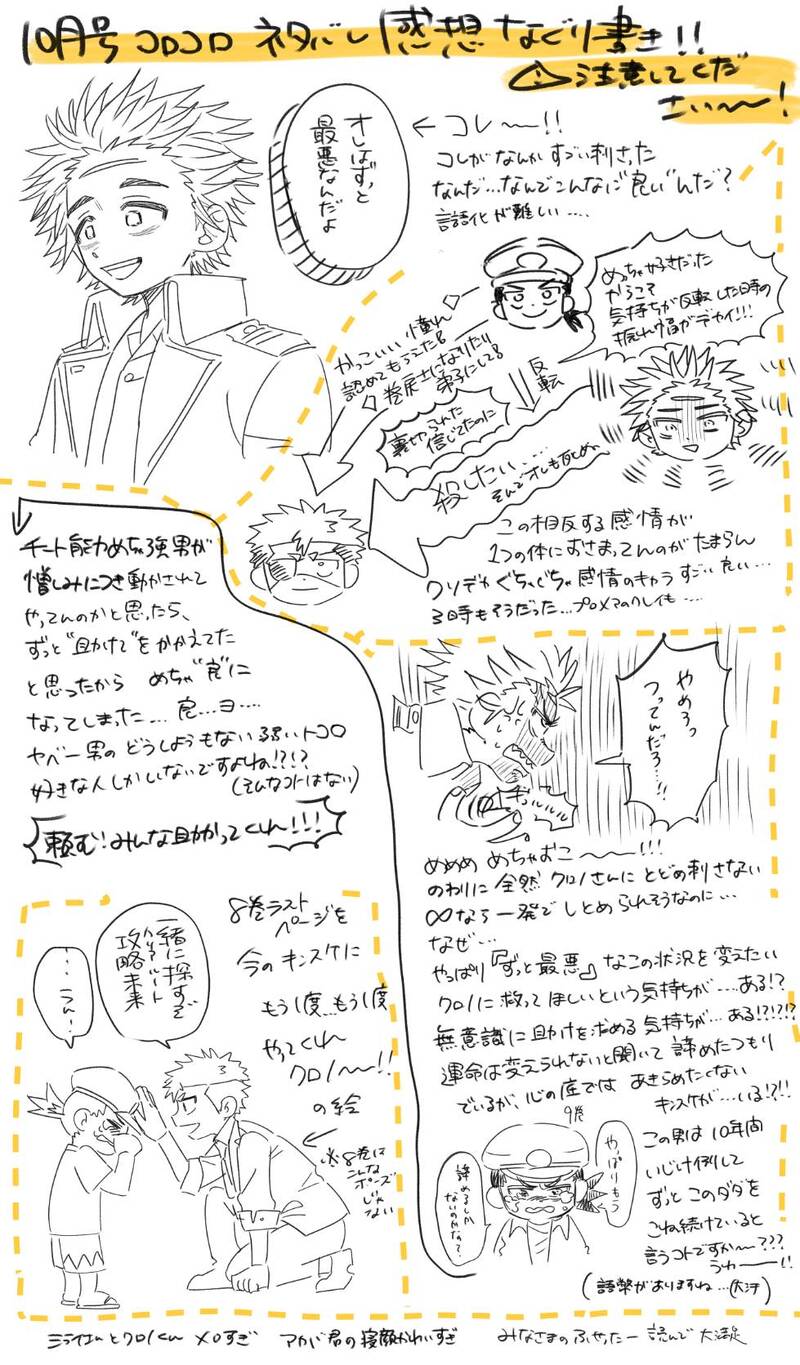 10月号コロコロ ネタバレ感想なぐり書き!!
⚠注意してくだ
さい〜〜!
オレはずっと
最悪なんだよ
← コレ〜〜!!
コレがなんかすごい刺さった
なんだ…なんでこんなに"良い"んだ?
言語化が難しい….
めっちゃ好きだった
からこそ
気持ちが反転した時の
振れ幅がデカイ!!!
かっこいい 憧れ
認めてもらえた♂
巻戻士になりたり
弟子にして♂
反転
裏切られた
信じてたのに
殺したい……
そんでオレも死ぬ、
この相反する感情が
1つの体におさまってんのがたまらん
クソデカぐちゃぐちゃ感情のキャラすごい良い…
3日時もそうだった…プロメアのクレイも….
チート能力めちゃ強男が
憎しみにつき動かされて
やってんのかと思ったら、
ずっと"助けて"をかかえてた
と思ったから めちゃ"良"に
なってしまった… 良…ヨ….
ヤベー男の どうしようもない弱いトコロ
好きな人しかいないですよね!?!?
(そんなコトはない)
頼む!みんな助かってくれ!!!
やめろっ
つってんだろ…!!
ギュルルルル
めめめ めちゃおこ〜〜〜!!!
のわりに 全然 クロノさんに とどめ刺さない
∞なら 一発で しとめられそうなのに…
なぜ…
やっぱり『ずっと最悪』な この状況を変えたい
クロノに救ってほしいという気持ちが…ある!?
無意識に助けを求める気持ちが…ある!?!?!?
運命は変えられないと聞いて 諦めたつもり
でいるが、心の底では あきらめたくない
キンスケが…いる!?!!
9巻
やっぱりもう
諦めるしか
ないのかな?
この男は10年間
いじけ倒して
ずっと このダダを
こね続けていると
言うコトですか〜???
うわ〜〜!!
(語弊がありますね…(大汗)
8巻ラスト
ページを
今のキンスケに
もう1度…もう1度
やってくれ
クロノ〜!!
の絵
※8巻は
こんな
ポーズ
じゃ
ない
一緒に探すぞ
攻略未来
…うん!
ミライさんとクロノくん メロすぎ
アカバ君の寝顔かわいすぎ
みなさまのふせったー 読んで 大満足